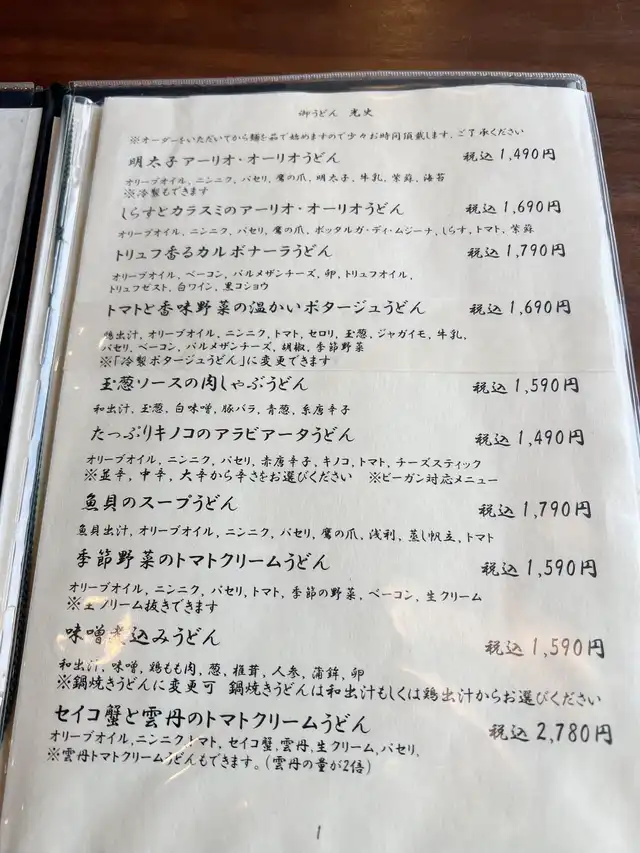 御うどん 光火
※オーダーをいただいてから麺を茹で始めますので少々お時間頂戴します。ご了承ください
明太子アーリオ・オーリオうどん 税込 1,490円
オリーブオイル, ニンニク, パセリ, 鷹の爪, 明太子, 牛乳, 紫蘇, 海苔
※冷製もできます
しらすとカラスミのアーリオ・オーリオうどん 税込 1,690円
オリーブオイル, ニンニク, パセリ, 鷹の爪, ボッタルガ・ディ・ムジーナ, しらす, トマト, 紫蘇
トリュフ香るカルボナーラうどん 税込 1,790円
オリーブオイル, ベーコン, パルメザンチーズ, 卵, トリュフオイル,
トリュフゼスト, 白ワイン, 黒コショウ
トマトと香味野菜の温かいポタージュうどん 税込 1,690円
鶏出汁, オリーブオイル, ニンニク, トマト, セロリ, 玉葱, ジャガイモ, 牛乳,
パセリ, ベーコン, パルメザンチーズ, 胡椒, 季節野菜
※「冷製ポタージュうどん」に変更できます
玉葱ソースの肉しゃぶうどん 税込 1,590円
和出汁, 玉葱, 白味噌, 豚バラ, 青葱, 糸唐辛子
たっぷりキノコのアラビアータうどん 税込 1,490円
オリーブオイル, ニンニク, パセリ, 赤唐辛子, キノコ, トマト, チーズスティック
※並辛, 中辛, 大辛から辛さをお選びください ※ビーガン対応メニュー
魚貝のスープうどん 税込 1,790円
魚貝出汁, オリーブオイル, ニンニク, パセリ, 鷹の爪, 浅利, 蒸し帆立, トマト
季節野菜のトマトクリームうどん 税込 1,590円
オリーブオイル, ニンニク, パセリ, トマト, 季節の野菜, ベーコン, 生クリーム
※生クリーム抜きできます
味噌煮込みうどん 税込 1,590円
和出汁, 味噌, 鶏もも肉, 葱, 椎茸, 人参, 蒲鉾, 卵
※鍋焼きうどんに変更可 鍋焼きうどんは和出汁もしくは鶏出汁からお選びください
セイコ蟹と雲丹のトマトクリームうどん 税込 2,780円
オリーブオイル, ニンニク, トマト, セイコ蟹, 雲丹, 生クリーム, パセリ,
※雲丹トマトクリームうどんもできます。(雲丹の量が2倍)
1